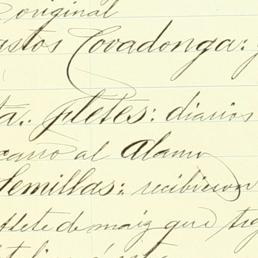 original
astos Covadonga:
ta. fletes: diarios
carro al Alamo
Semillas: recibieron
flete de maiz que